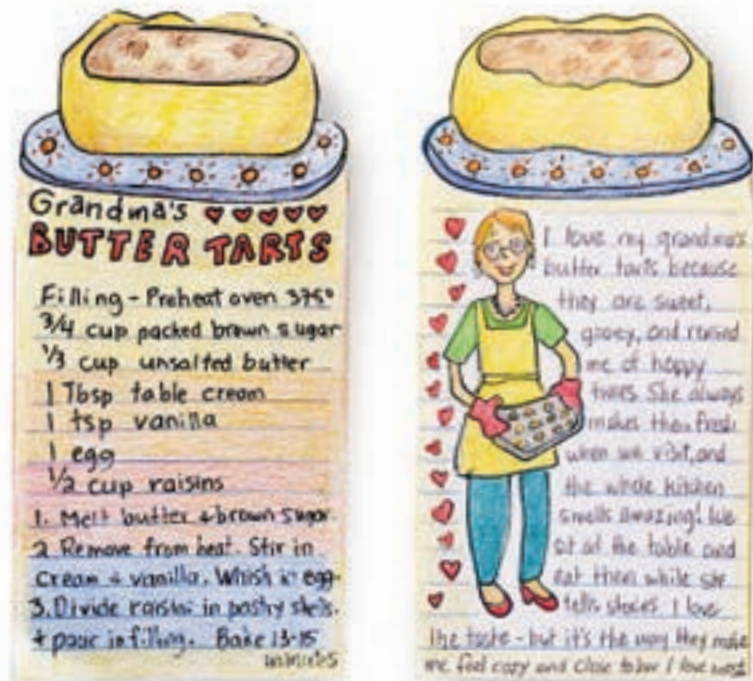 Grandma's
BUTTER TARTS
Filling - Preheat oven 375°
3/4 cup packed brown sugar
1/3 cup unsalted butter
1 Tbsp table cream
1 tsp vanilla
1 egg
1/2 cup raisins
1. Melt butter + brown sugar
2 Remove from heat. Stir in
cream + vanilla. Whish in egg.
3. Divide raisins in pastry shells.
+ pour in filling. Bake 13-15
minutes
I love my grandma's
butter tarts because
they are sweet,
gooey, and remind
me of happy
times. She always
makes them fresh
when we visit, and
the whole kitchen
smells amazing! We
sit at the table and
eat them while she
tells stories. I love
the taste - but it's the way they make
me feel cozy and close to her I love most